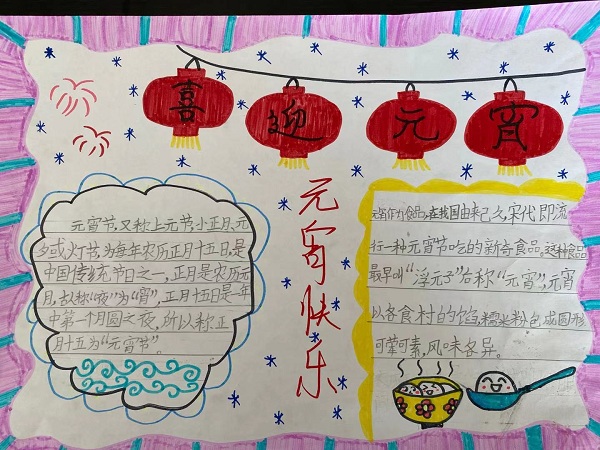 喜迎元宵
元宵快乐
元宵节,又称上元节、小正月、元
夕或灯节,为每年农历正月十五日,是
中国传统节日之一,正月是农历元
月,古人称"夜"为"宵",正月十五日是一年
中第一个月圆之夜,所以称正
月十五为"元宵节"。
元宵作为食品,在我国由来已久,宋代即流
行一种元宵节吃的新奇食品。这种食品
最早叫"浮元子"后称"元宵",元宵
以各食材的馅,糯米粉包成圆形
可荤可素,风味各异。